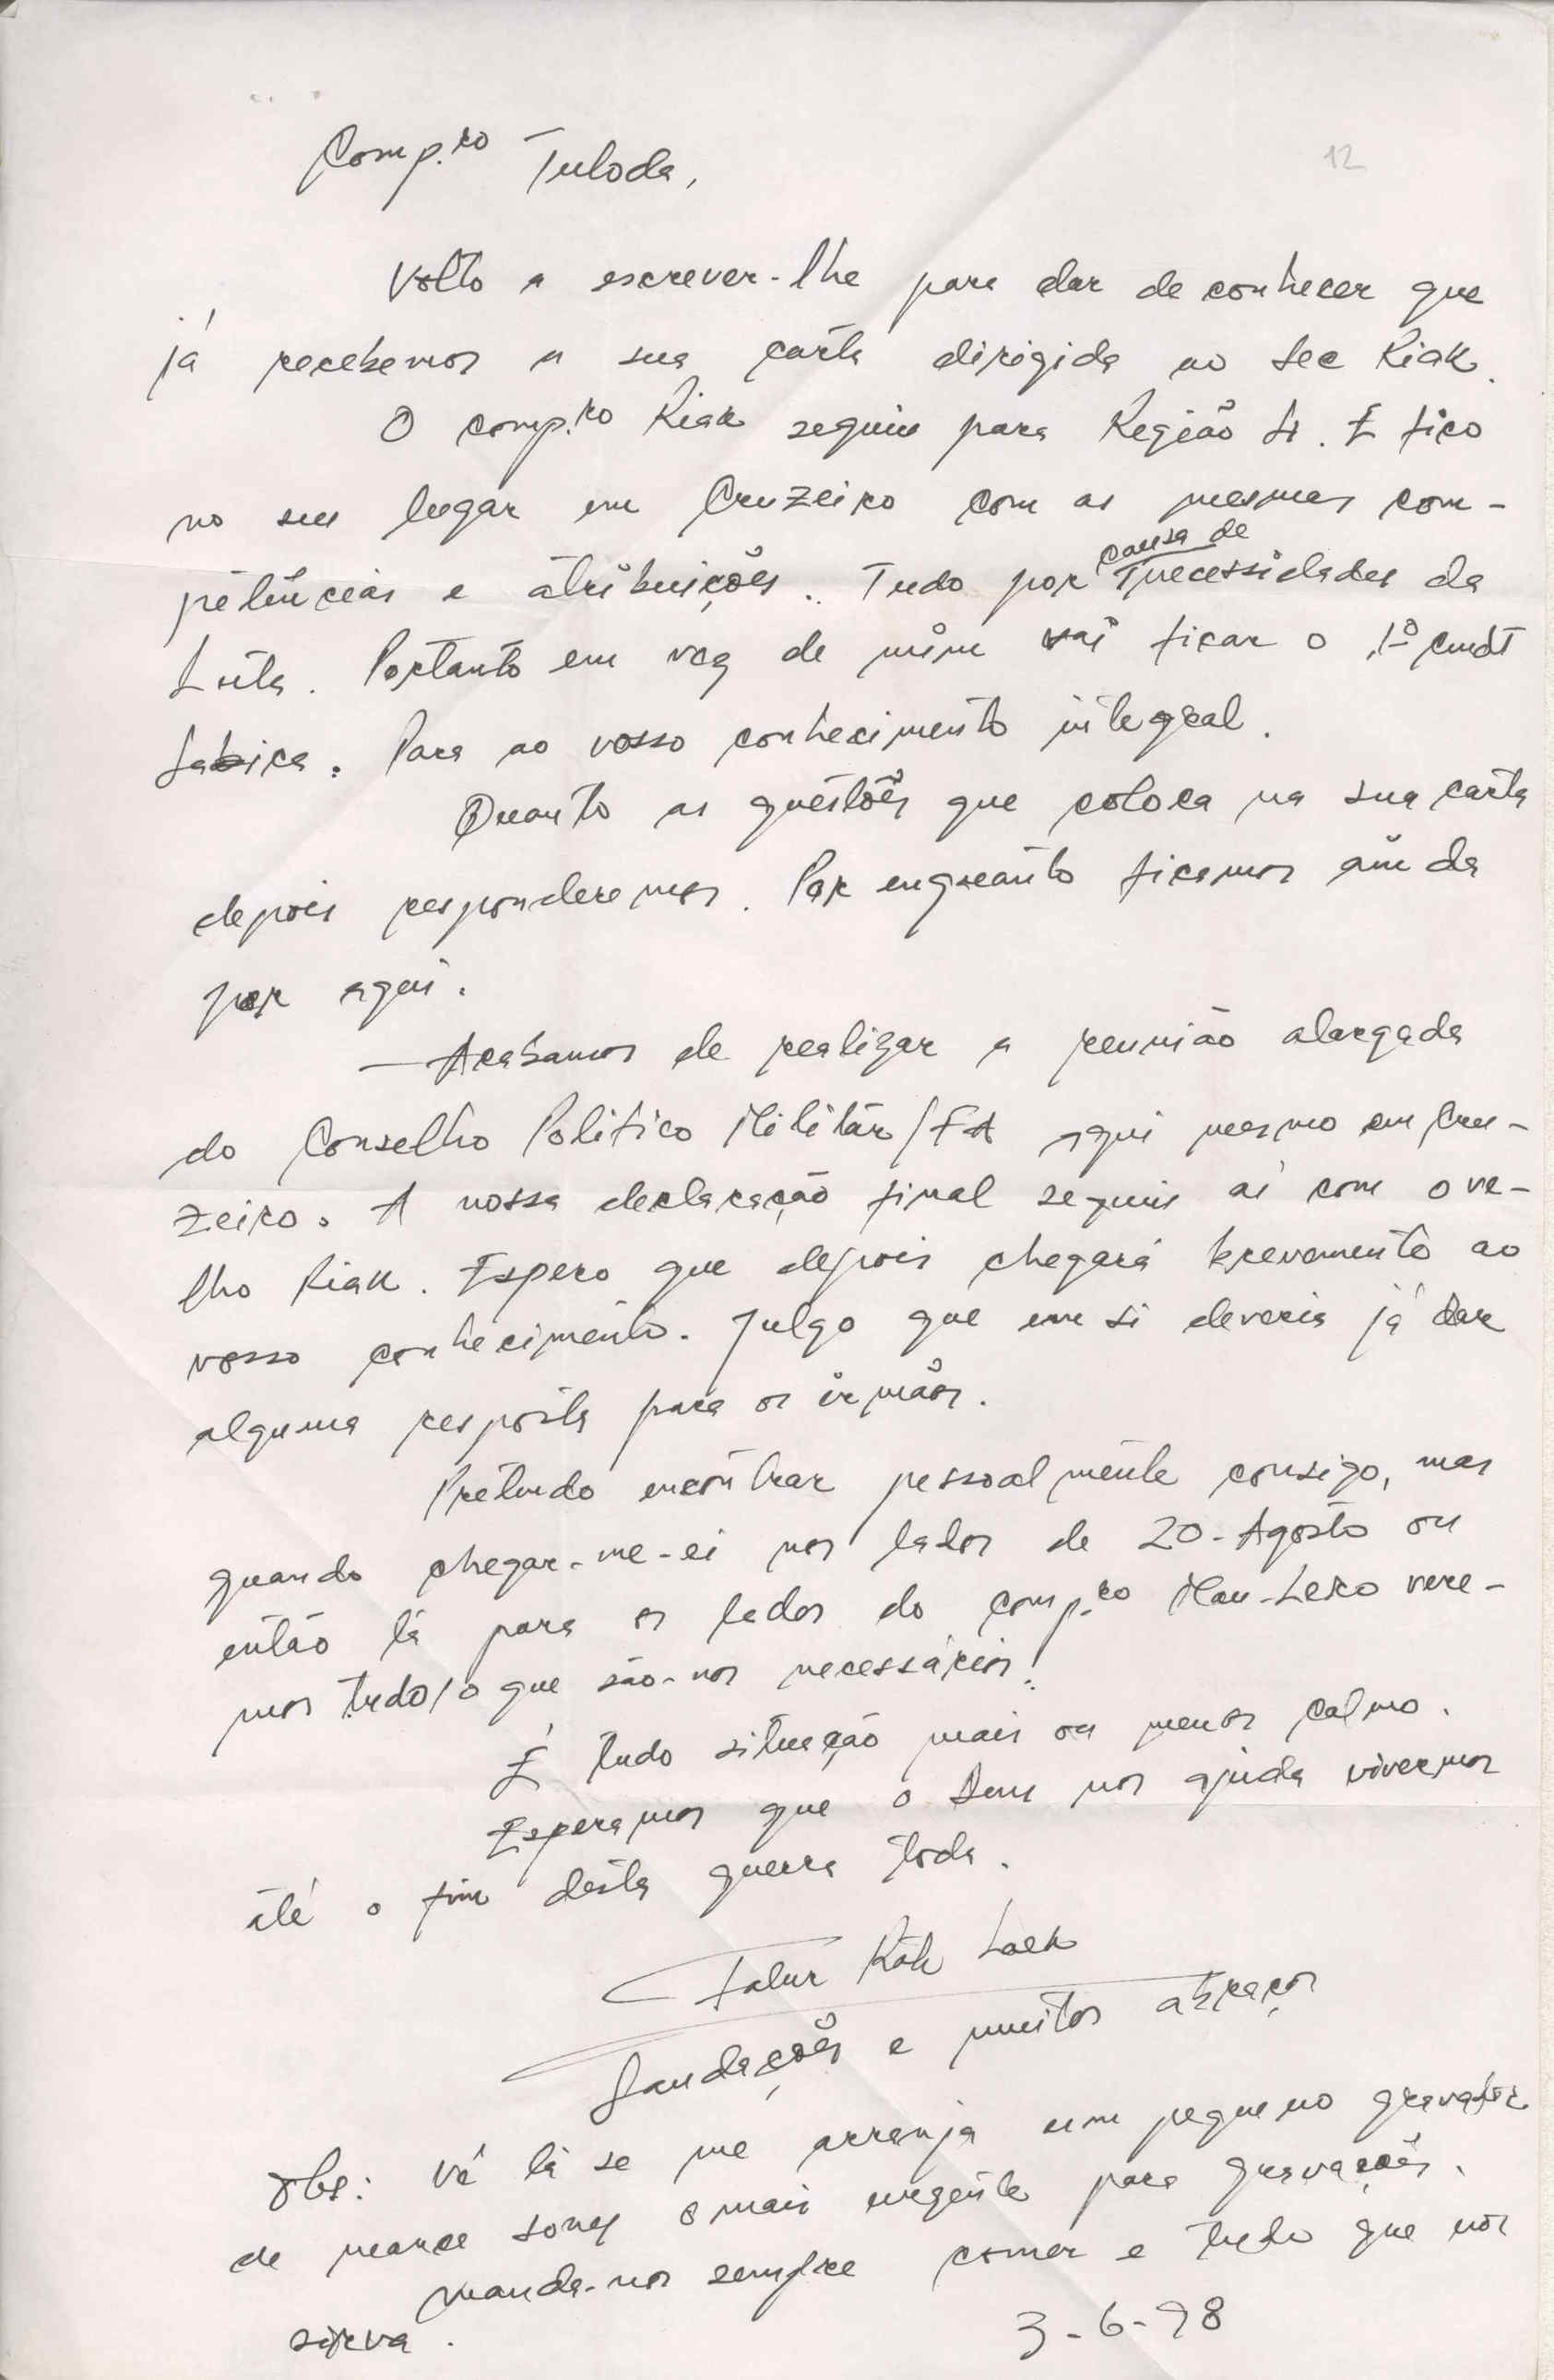 12
Comp.ro Tuloda,
Volto a escrever-lhe para dar de conhecer que
já recebemos a sua carta dirigida ao Sec Riak.
O comp.ro Riak seguiu para Região 4. E fico
no seu lugar em Cruzeiro com as mesmas com-
petências e atribuições. Tudo por causa de necessidades da
Luta. Portanto em vez de mim vai ficar o 1º cmdt
Sabica. Para ao vosso conhecimento integral.
Quanto as questões que coloca na sua carta
depois responderemos. Por enquanto ficamos ainda
por aqui.
— Acabamos de realizar a reunião alargada
do Conselho Politico Militar/FA aqui mesmo em Cru-
zeiro. A nossa declaração final seguiu aí com o ve-
lho Riak. Espero que depois chegará brevemente ao
vosso conhecimento. Julgo que em si deveria já dar
alguma resposta para os irmãos.
Pretendo encontrar pessoalmente consigo, mas
quando chegar-me-ei nos lados de 20-Agosto ou
então lá para os lados do comp.ro Mau-Lero vere-
mos tudo/o que são-nos necessários!
É tudo situação mais ou menos calmo.
Esperamos que o Deus nos ajuda vivermos
até o fim desta guerra toda.
Falur Rate Laek
Saudações e muitos abraços
Obs: Vê lá se me arranja um pequeno gravador
de marca sony o mais urgente para gravações.
Manda-nos sempre comer e tudo que nos
sirva.
3-6-98